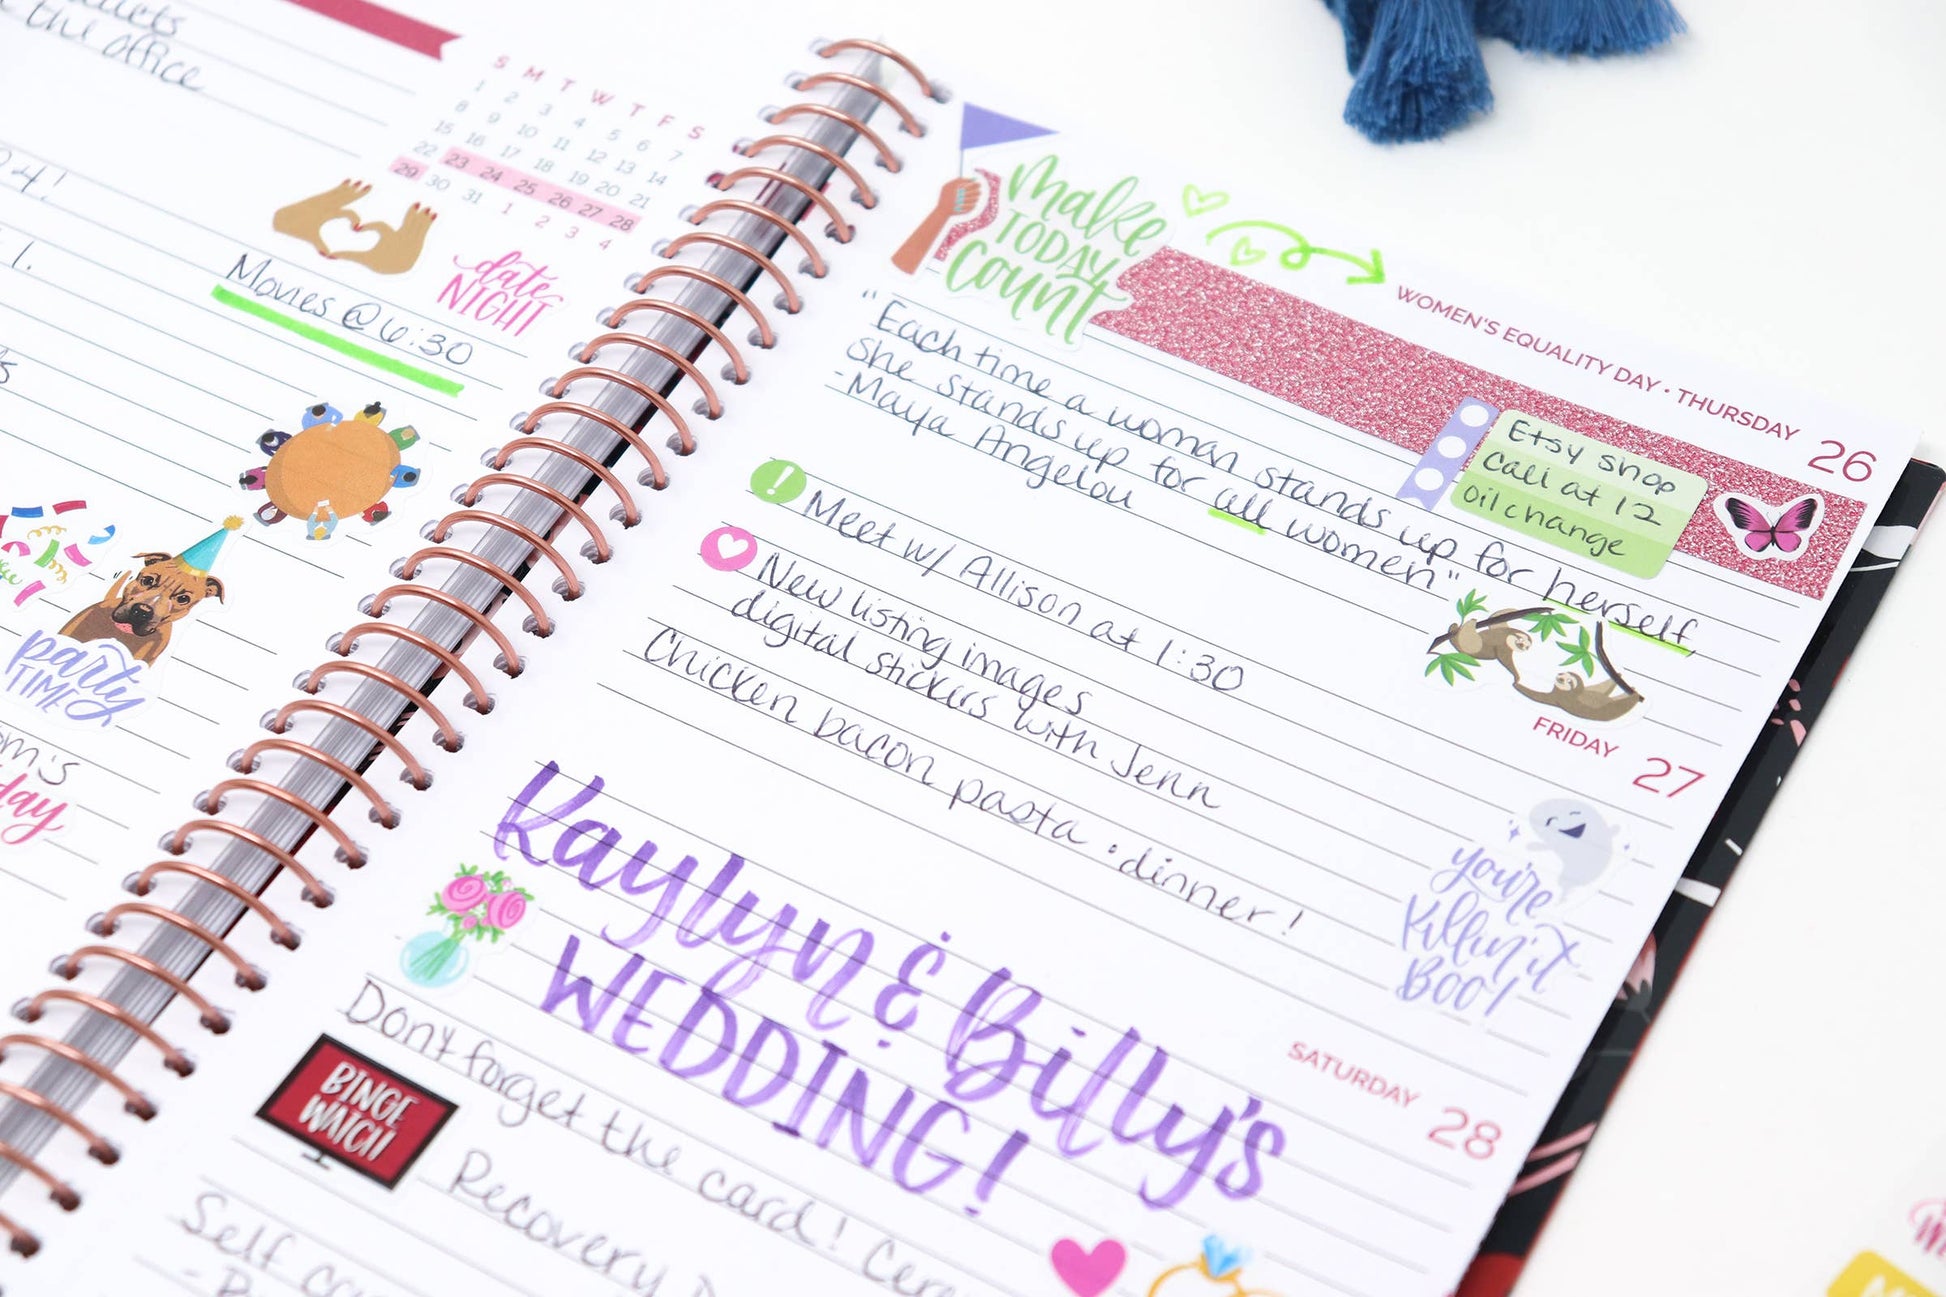 the office
S M T W T F S
1 2 3 4 5 6 7
8 9 10 11 12 13 14
15 16 17 18 19 20 21
22 23 24 25 26 27 28
29 30 31 1 2 3 4
date
NIGHT
Movies @ 6:30
party
TIME
make
TODAY
Count
WOMEN'S EQUALITY DAY • THURSDAY 26
"Each time a woman stands up for herself
she stands up for all women"
-Maya Angelou
Etsy shop
call at 12
oil change
! Meet w/ Allison at 1:30
New listing images
digital stickers with Jenn
Chicken bacon pasta • dinner!
FRIDAY 27
Kaylyn & Billy's
WEDDING!
you're
killin' it
BOO!
Don't forget the card!
SATURDAY 28
BINGE
WATCH
Recovery
Self